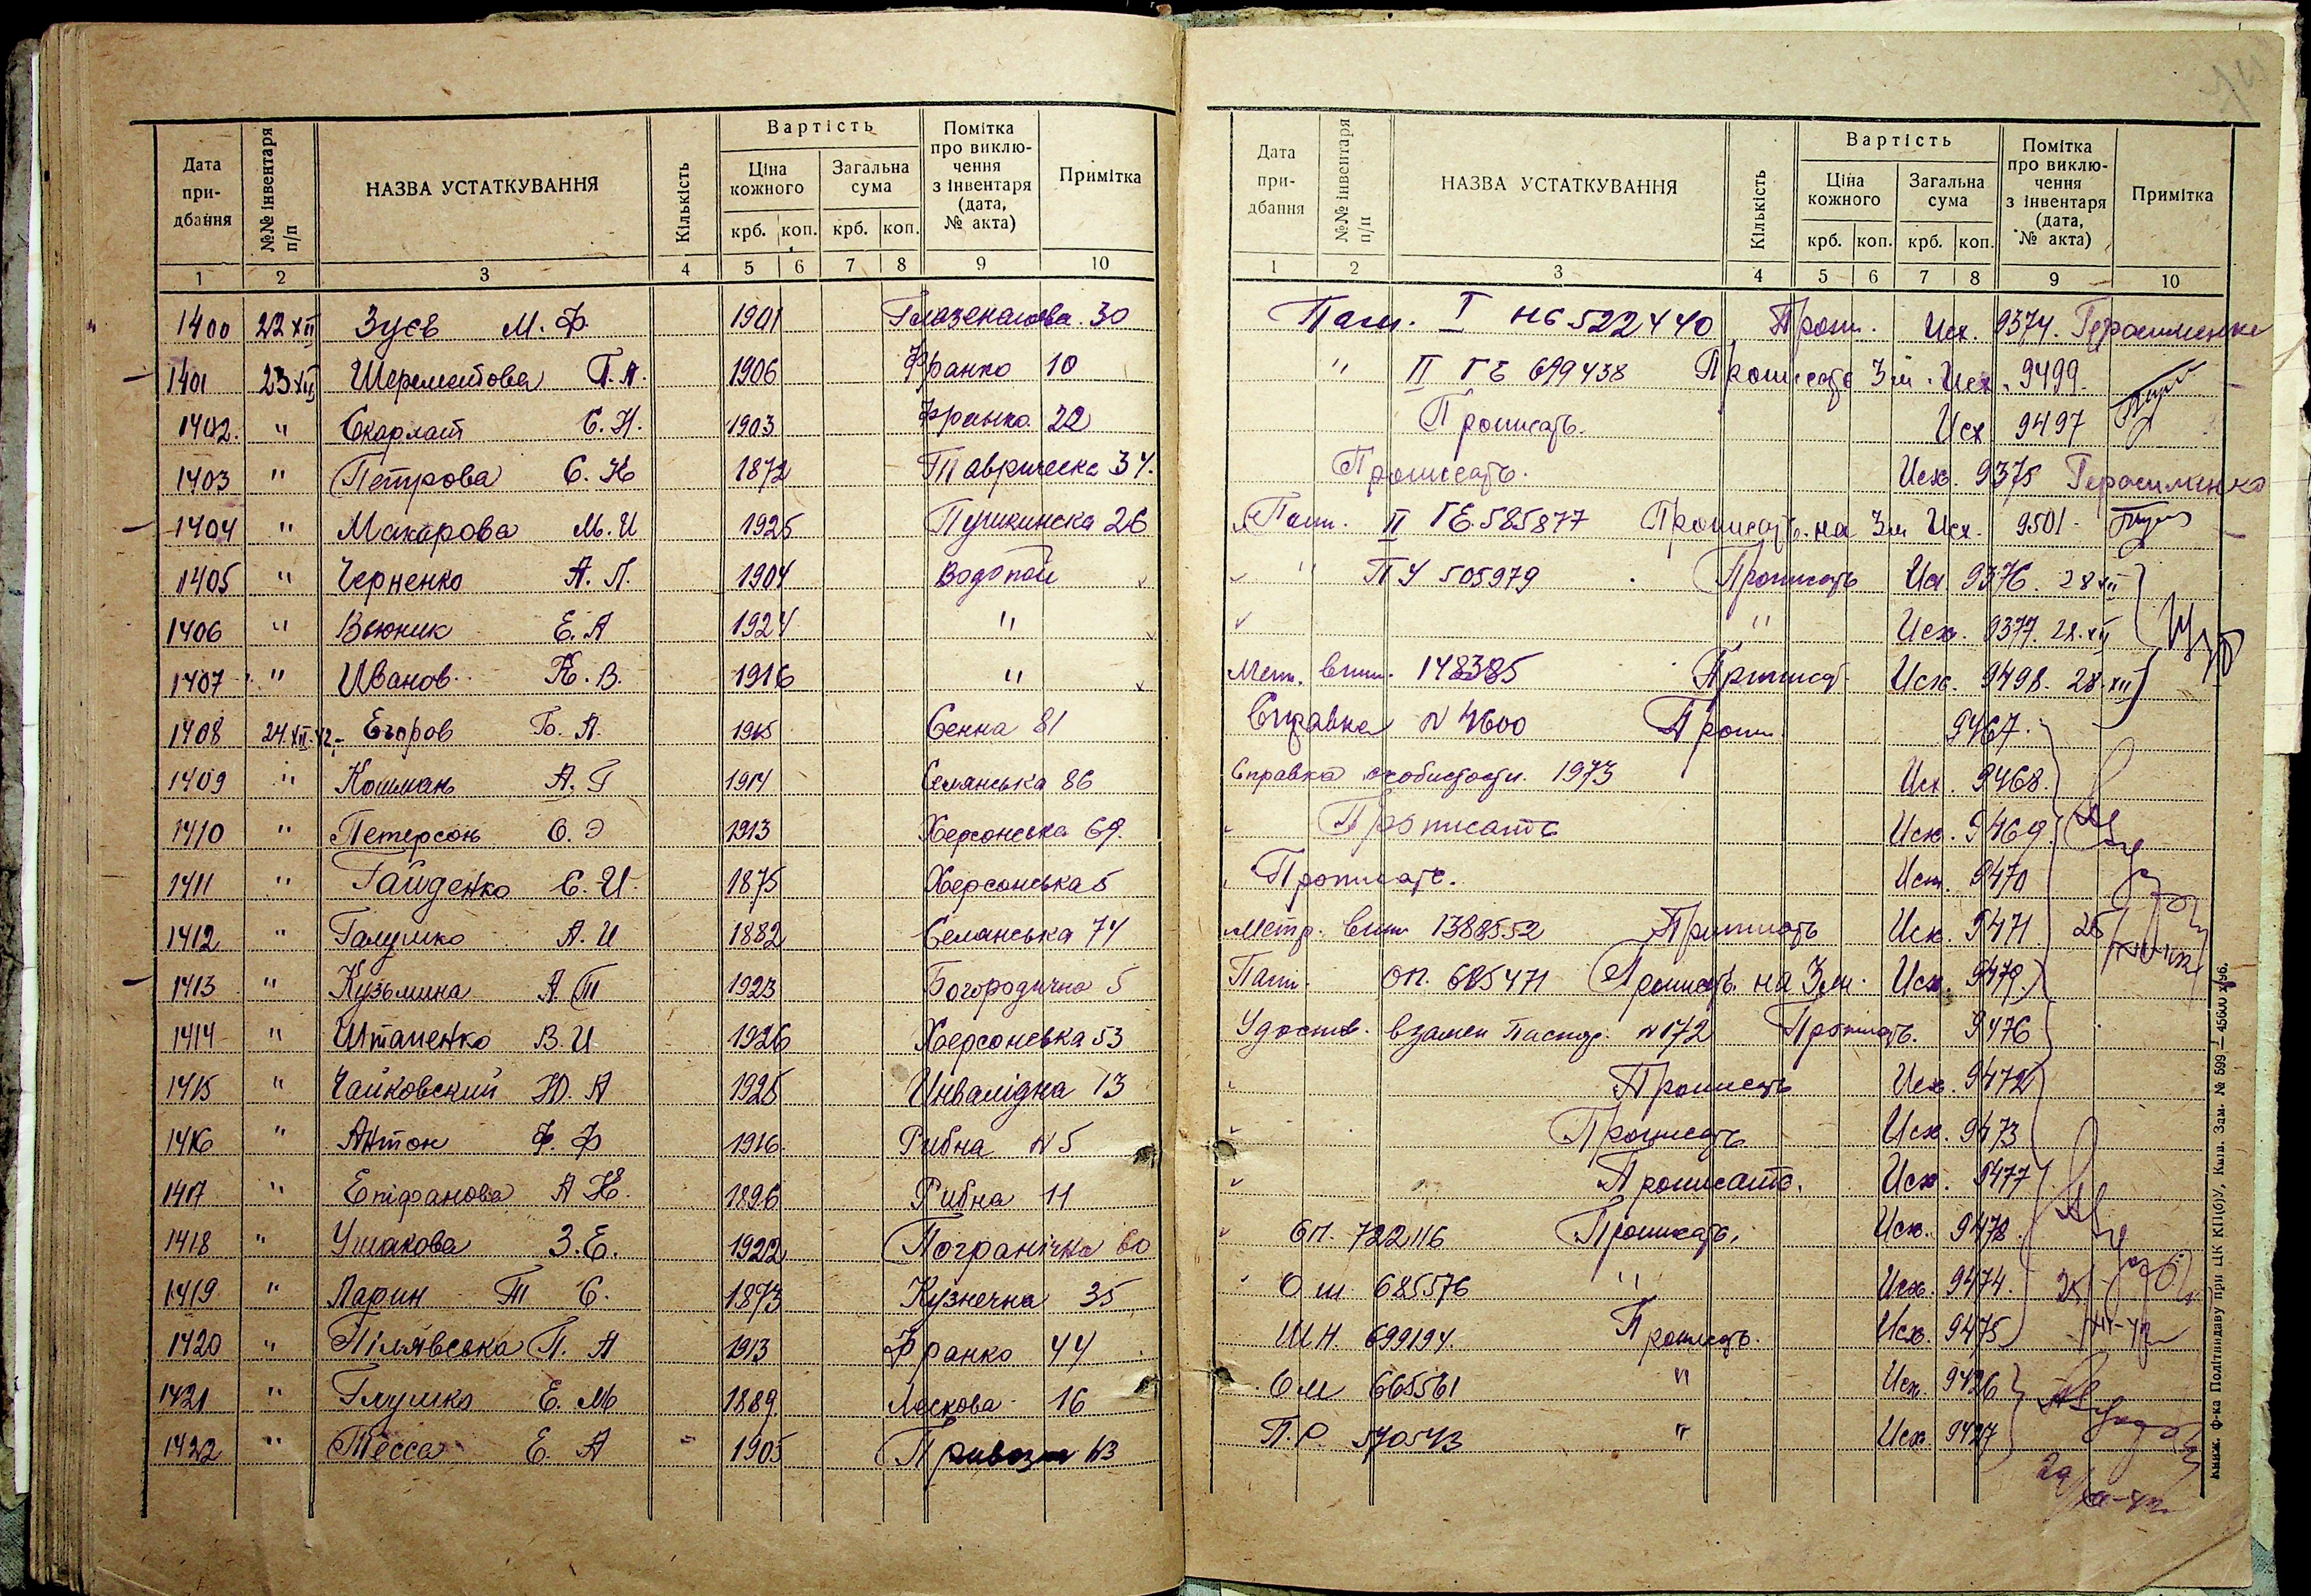 Дата придбання №№ інвентаря п/п НАЗВА УСТАТКУВАННЯ Кількість Вартість Ціна кожного крб. коп. Загальна сума крб. коп. Помітка про виключення з інвентаря (дата, № акта) Примітка
1 2 3 4 5 6 7 8 9 10
1400 22 XII Зуєв М. Ф. 1901 30
1401 23 XII Шереметова Г. А. 1906 Франко 10
1402. " Скарлат С. Н. 1903 Франко 22
1403 " Петрова С. К 1872 Таврическа 34.
1404 " Макарова М. И 1925 Пушкинска 26
1405 " Черненко А. П. 1904 Водопой
1406 " Вьюник Е. А 1924 "
1407 " Иванов К. В. 1916 "
1408 24.XII.42 Егоров Б. А. 1915 Сенна 81
1409 " Кошман А. Г 1914 Селянська 86
1410 " Петерсон О. Э 1913 Херсонська 69.
1411 " Гайденко С. И. 1875 Херсонська 5
1412 " Галушко А. И 1882 Селянська 74
1413 " Кузьмина А. Т 1923 Богородична 5
1414 " Штаненко В. И 1926 Херсонська 53
1415 " Чайковский Ю. А 1925 Инвалідна 13
1416 " Антон Ф. Ф 1916. Рибна N 5
1417 " Епіфанова А К. 1896 Рибна 11
1418 " Ушакова З. Е. 1922 Погранічна 60
1419 " Ларин Т С. 1873 Кузнечна 35
1420 " Пілявська П. А 1913 Франко 44
1421 " Глушко Е. М 1889. Москова 16
1422 " Тесса Е. А " 1905 13
Дата придбання №№ інвентаря п/п НАЗВА УСТАТКУВАННЯ Кількість Вартість Ціна кожного крб. коп. Загальна сума крб. коп. Помітка про виключення з інвентаря (дата, № акта) Примітка
1 2 3 4 5 6 7 8 9 10
Пасп. I НБ 522440 Проп. Исх. 9374. Герасименко
" II ГЕ 699438 Прописать 3 м. Исх. 9499.
Прописать. Исх 9497
Прописать. Исх 9375 Герасименко
Пасп. II ГЕ. 585877 Прописать на 3 м Исх. 9501.
" П У 505979 Прописать Исх 9376. 28 XII
" Исх. 9377. 28. XII
Метр. вип. 148385 Прописать Исх. 9498. 28. XII
Справка N 4600 Проп. 9467.
Справка особистости. 1973 Исх. 9468.
Прописать Исх. 9469.
Прописать. Исх. 9470
Метр. вип 1388552 Прописать Исх. 9471 25/XII-42
Пасп. ОП. 685471 Прописать на 3 м. Исх. 9479.
Удостов. взамен Паспор. N 172 Прописать. 9476
Прописать Исх. 9472
Прописать Исх. 9473
Прописать. Исх. 9477
ОП. 722116 Прописать. Исх. 9478.
О ш 685576 " Исх. 9474.
Ш Н. 699194. Прописать. Исх. 9475
О м 665561 " Исх. 9426
П. Р. 570543 " Исх. 9427
Книж. ф-ка Політвидаву при ЦК КП(б)У, Київ. Зам. № 599—45600